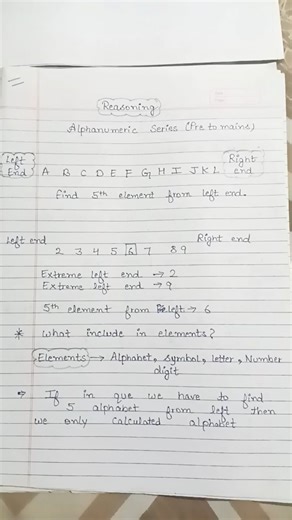 Reasoning
Alphanumeric Series (Pre to mains)
Left End A B C D E F G H I J K L Right end
Find 5th element from left end.
Left end Right end
2 3 4 5 6 7 8 9
Extreme left end → 2
Extreme left end → 9
5th element from left → 6
* What include in elements?
Elements → Alphabet, symbol, letter, Number
digit
⇒ If in que we have to find
5 alphabet from left then
we only calculated alphabet